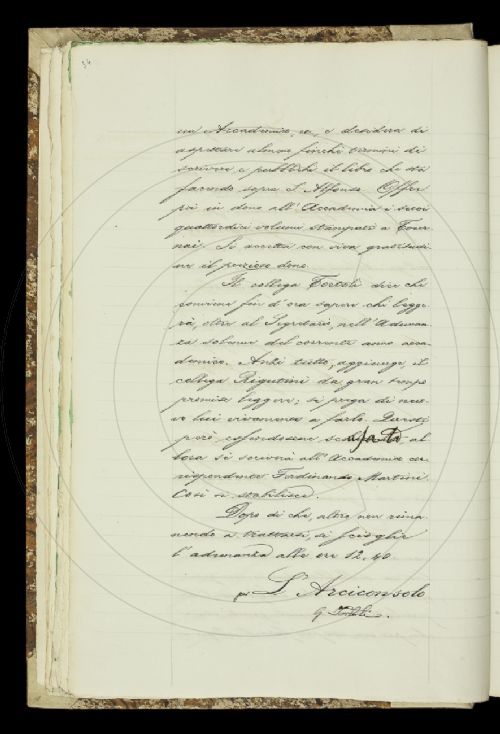 un Accademico, e, e desidera di
aspettare almeno finchè termini di
scrivere e pubblichi il libro che sta
facendo sopra S. Alfonso. Offre
poi in dono all'Accademia i suoi
quattordici volumi stampati a Tour-
nai. Si accetta con viva gratitudi-
ne il prezioso dono.
Il collega Tortoli dice che
conviene fin d'ora sapere chi legge-
rà, oltre al Segretario, nell'Adunan-
za solenne del corrente anno acca-
demico. Anzi tutto, aggiunge, il
collega Rigutini da gran tempo
promise leggere; si prega di nuo-
vo lui vivamente a farlo. Quando
però al-
lora si scriverà all'Accademico cor-
rispondente Ferdinando Martini.
Così si stabilisce.
Dopo di che, altro non rima-
nendo a trattarsi, si scioglie
l'adunanza alle ore 12,40
per L'Arciconsolo
G. Tortoli.